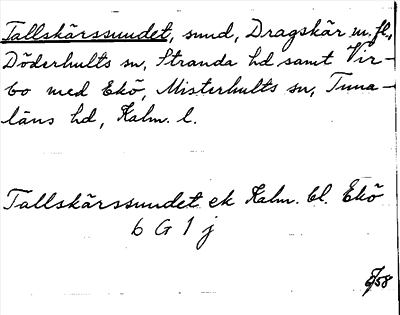 Tallskärssundet, sund, Dragskär m.fl.,
Döderhults sn, Stranda hd samt Vir-
bo med Ekö, Misterhults sn, Tuna-
läns hd, Kalm. l.
Tallskärssundet ek Kalm. bl. Ekö
6 G 1 j
/58